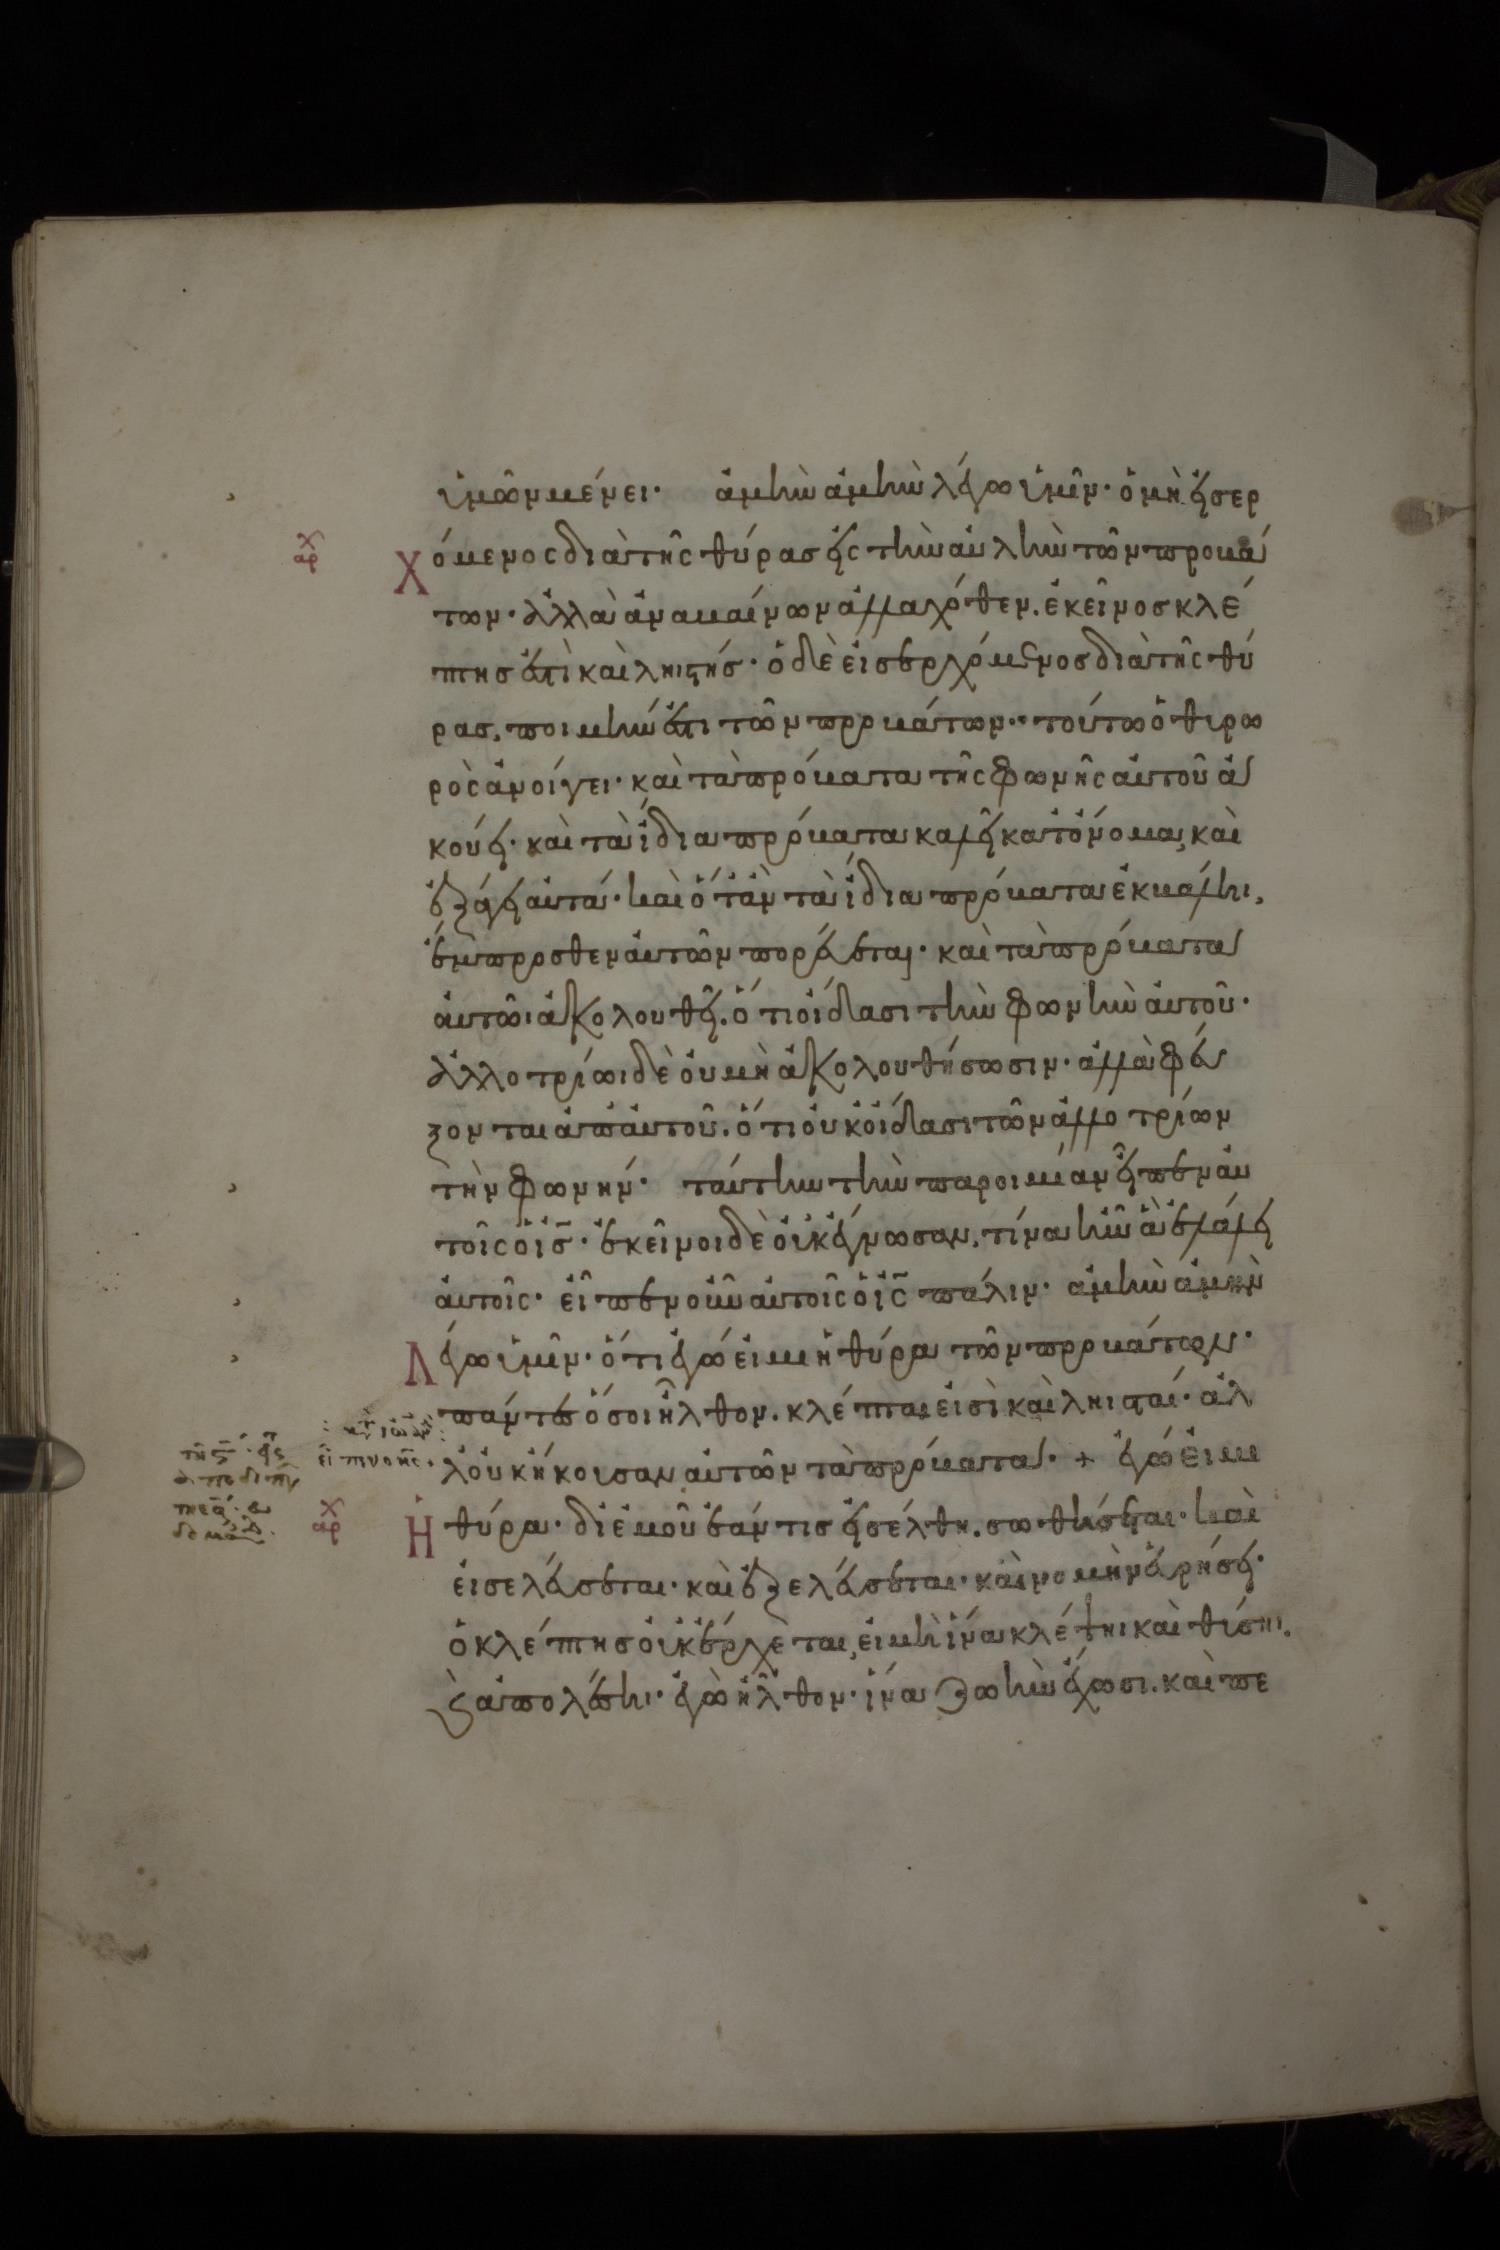 ὑμῶν μένει· ἀμὴν ἀμὴν λέγω ὑμῖν· ὁ μὴ εἰσερ
Χόμενος διὰ τῆς θύρας εἰς τὴν αὐλὴν τῶν προβά
των· ἀλλὰ ἀναβαίνων ἀλλαχόθεν. ἐκεῖνος κλέ
πτης ἐστὶ καὶ ληιστής· ὁ δὲ εἰσερχόμενος διὰ τῆς θύ
ρας, ποιμήν ἐστι τῶν προβάτων· τούτω ὁ θυρω
ρὸς ἀνοίγει· καὶ τὰ πρόβατα τῆς φωνῆς αὐτοῦ ἀ
κούει· καὶ τὰ ἴδια πρόβατα καλεῖ κατ' ὄνομα, καὶ
ἐξάγει αὐτά· καὶ ὅταν τὰ ἴδια πρόβατα ἐκβάληι,
ἔμπροσθεν αὐτῶν πορεύεται· καὶ τὰ πρόβατα
αὐτῶι ἀκολουθεῖ. ὅτι οἴδασι τὴν φωνὴν αὐτοῦ·
ἀλλοτρίωι δὲ οὐ μὴ ἀκολουθήσωσιν· ἀλλὰ φεύ
ξονται ἀπ' αὐτοῦ. ὅτι οὐκ οἴδασι τῶν ἀλλοτρίων
τὴν φωνήν· ταύτην τὴν παροιμίαν εἶπεν αὐ
τοῖς ὁ ις· ἐκεῖνοι δὲ οὐκ ἔγνωσαν, τίνα ἦν ἃ ἐλάλει
αὐτοῖς· εἶπεν οὖν αὐτοῖς ὁ ις πάλιν· ἀμὴν ἀμὴν
Λέγω ὑμῖν· ὅτι ἐγώ εἰμι ἡ θύρα τῶν προβάτων·
πάντες ὅσοι ἦλθον. κλέπται εἰσὶ καὶ ληισταί· ἀλ
λ' οὐκ ἤκουσαν αὐτῶν τὰ πρόβατα· + ἐγώ εἰμι
Ἡ θύρα· δι' ἐμοῦ ἐάν τις εἰσέλθη. σωθήσεται· καὶ
εἰσελεύσεται· καὶ ἐξελεύσεται· καὶ νομὴν εὑρήσει·
ὁ κλέπτης οὐκ ἔρχεται, εἰ μὴ ἵνα κλέψηι καὶ θύσηι.
Καὶ ἀπολέσηι· ἐγὼ ἦλθον· ἵνα ζωὴν ἔχωσι. καὶ πε
αρχ
εἶπεν ὁ κς·
αρχ